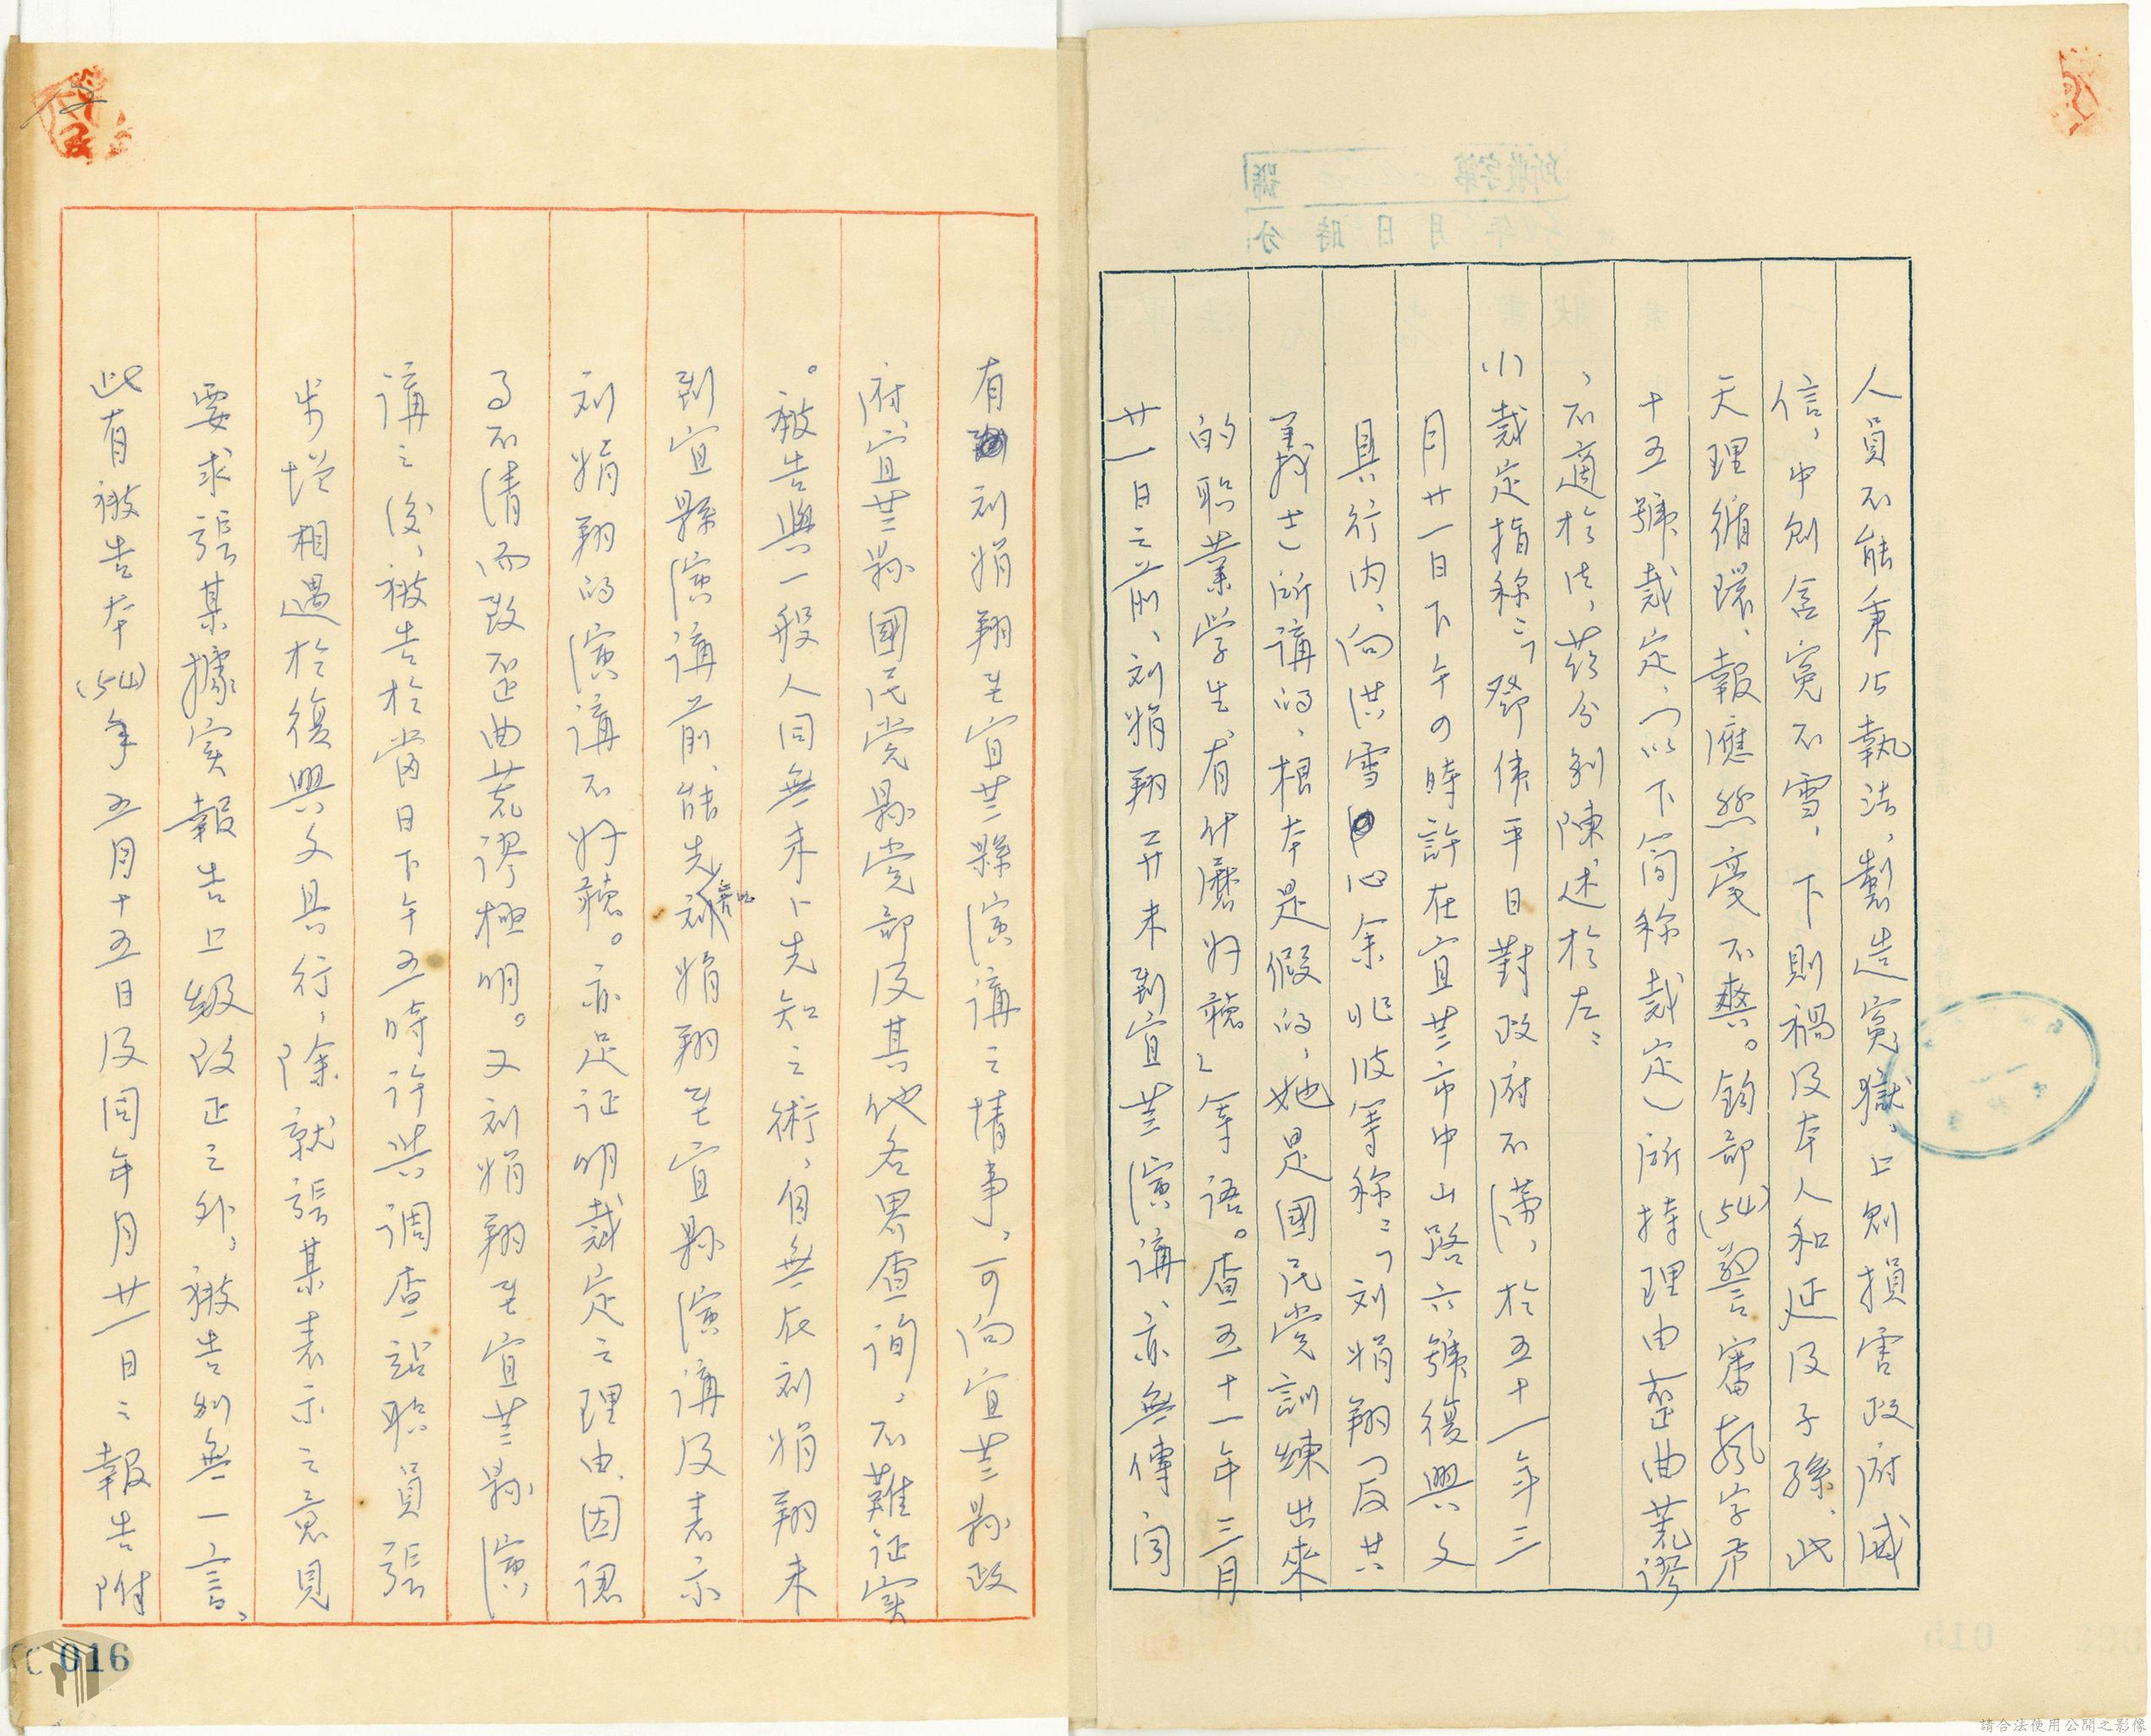 人員不能秉公執法，製造冤獄，上則損害政府威
信，中則含冤不雪，下則禍及本人和延及子孫，此
天理循環，報應絲毫不爽。鈞部(54)警審載字第
十五號裁定，（以下簡稱裁定）所持理由歪曲荒謬
，不適於法，茲分別陳述於左：
小裁定指称：「鄧偉平日對政府不滿，於五十一年三
月廿一日下午の時許在宜兰市中山路六號復興文
具行內，向洪雪心余兆波等称：「刘娟翔（反共
義士）所講的，根本是假的，她是國民党訓練出來
的职業学生，有什麼好聽」等語。查五十一年三月
廿一日之前，刘娟翔并未到宜兰演講，亦無傳聞
有刘娟翔至宜兰縣演講之情事，可向宜兰縣政
府，宜兰縣國民党縣党部及其他各界查詢，不難证实
。被告與一般人同無未卜先知之術，自無在刘娟翔未
到宜縣演講前，能先
刘娟翔至宜縣演講及表示
刘娟翔的演講不好聽。亦足证明裁定之理由，因認
不清而致歪曲荒謬極明。又刘娟翔至宜兰縣演
講之後，被告於當日下午五時许與调查站职員張
相遇於復興文具行，除就張某表示之意見
要求張某據实報告上级改正之外，被告別無一言，
此有被告本(54)年五月十五日及同年月廿一日之報告附
016
請合法使用公開之影像